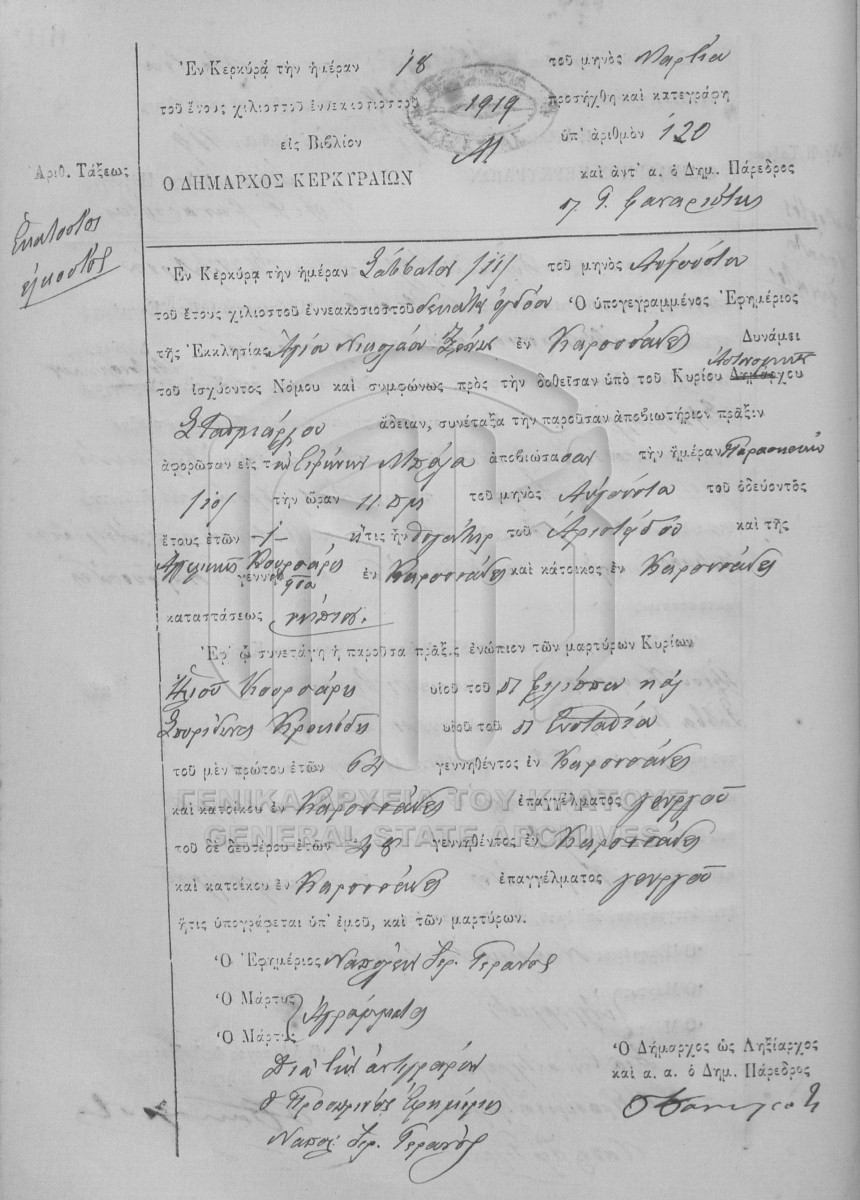 Ἐν Κερκύρᾳ τὴν ἡμέραν 18 τοῦ μηνὸς Μαρτίου
τοῦ ἔτους χιλιοστοῦ ἐννεακοσιοστοῦ 1919 προσήχθη καὶ κατεγράφη
εἰς Βιβλίον ὑπ' ἀριθμὸν 120
Ἀριθ. Τάξεως
Ο ΔΗΜΑΡΧΟΣ ΚΕΡΚΥΡΑΙΩΝ καὶ ἀντ' α. ὁ Δημ. Πάρεδρος
Ἑκατοστὸς
εἰκοστὸς
Ἐν Κερκύρᾳ τὴν ἡμέραν Σάββατον /11/ τοῦ μηνὸς Αὐγούστου
τοῦ ἔτους χιλιοστοῦ ἐννεακοσιοστοῦ δεκάτου ὀγδόου Ὁ ὑπογεγραμμένος Ἐφημέριος
τῆς Ἐκκλησίας Ἁγίου Νικολάου ἐν Καρουσάδες Δυνάμει
τοῦ ἰσχύοντος Νόμου καὶ συμφώνως πρὸς τὴν δοθεῖσαν ὑπὸ τοῦ Κυρίου Δημάρχου Ἀστυνομικοῦ
Σταθμάρχου ἄδειαν, συνέταξα τὴν παροῦσαν ἀποβιωτήριον πρᾶξιν
ἀφορῶσαν εἰς τὴν Εἰρήνην Μπόλα ἀποβιώσασαν τὴν ἡμέραν Παρασκευὴν
/10/ τὴν ὥραν 11 πμ τοῦ μηνὸς Αὐγούστου τοῦ ὁδεύοντος
ἔτους ἐτῶν -1- ἥτις ἦν θυγάτηρ τοῦ Ἀριστείδου καὶ τῆς
Ἀγγελικῆς Κουρσάρη γεννηθεῖσα ἐν Καρουσάδες καὶ κάτοικος ἐν Καρουσάδες
καταστάσεως νήπιον.
Ἐφ' ᾧ συνετάγη ἡ παροῦσα πρᾶξις ἐνώπιον τῶν μαρτύρων Κυρίων
Κουρσάρη υἱοῦ τοῦ Φιλίππου καὶ
Σπυρίδωνος υἱοῦ τοῦ Εὐσταθίου
τοῦ μὲν πρώτου ἐτῶν 64 γεννηθέντος ἐν Καρουσάδες
καὶ κατοίκου ἐν Καρουσάδες ἐπαγγέλματος γεωργοῦ
τοῦ δὲ δευτέρου ἐτῶν 48 γεννηθέντος ἐν Καρουσάδες
καὶ κατοίκου ἐν Καρουσάδες ἐπαγγέλματος γεωργοῦ
ἥτις ὑπογράφεται ὑπ' ἐμοῦ, καὶ τῶν μαρτύρων.
Ὁ Ἐφημέριος Ναπολέων Ἱερ. Γερανὸς
Ὁ Μάρτυς
Ἀγράμματοι
Ὁ Μάρτυς
Διὰ τὴν ἀντιγραφὴν
Ὁ Προσωρινὸς Ἐφημέριος
Ναπολ. Ἱερ. Γερανὸς
Ὁ Δήμαρχος ὡς Ληξίαρχος
καὶ α. α. ὁ Δημ. Πάρεδρος
ΓΕΝΙΚΑ ΑΡΧΕΙΑ ΤΟΥ ΚΡΑΤΟΥΣ
GENERAL STATE ARCHIVES